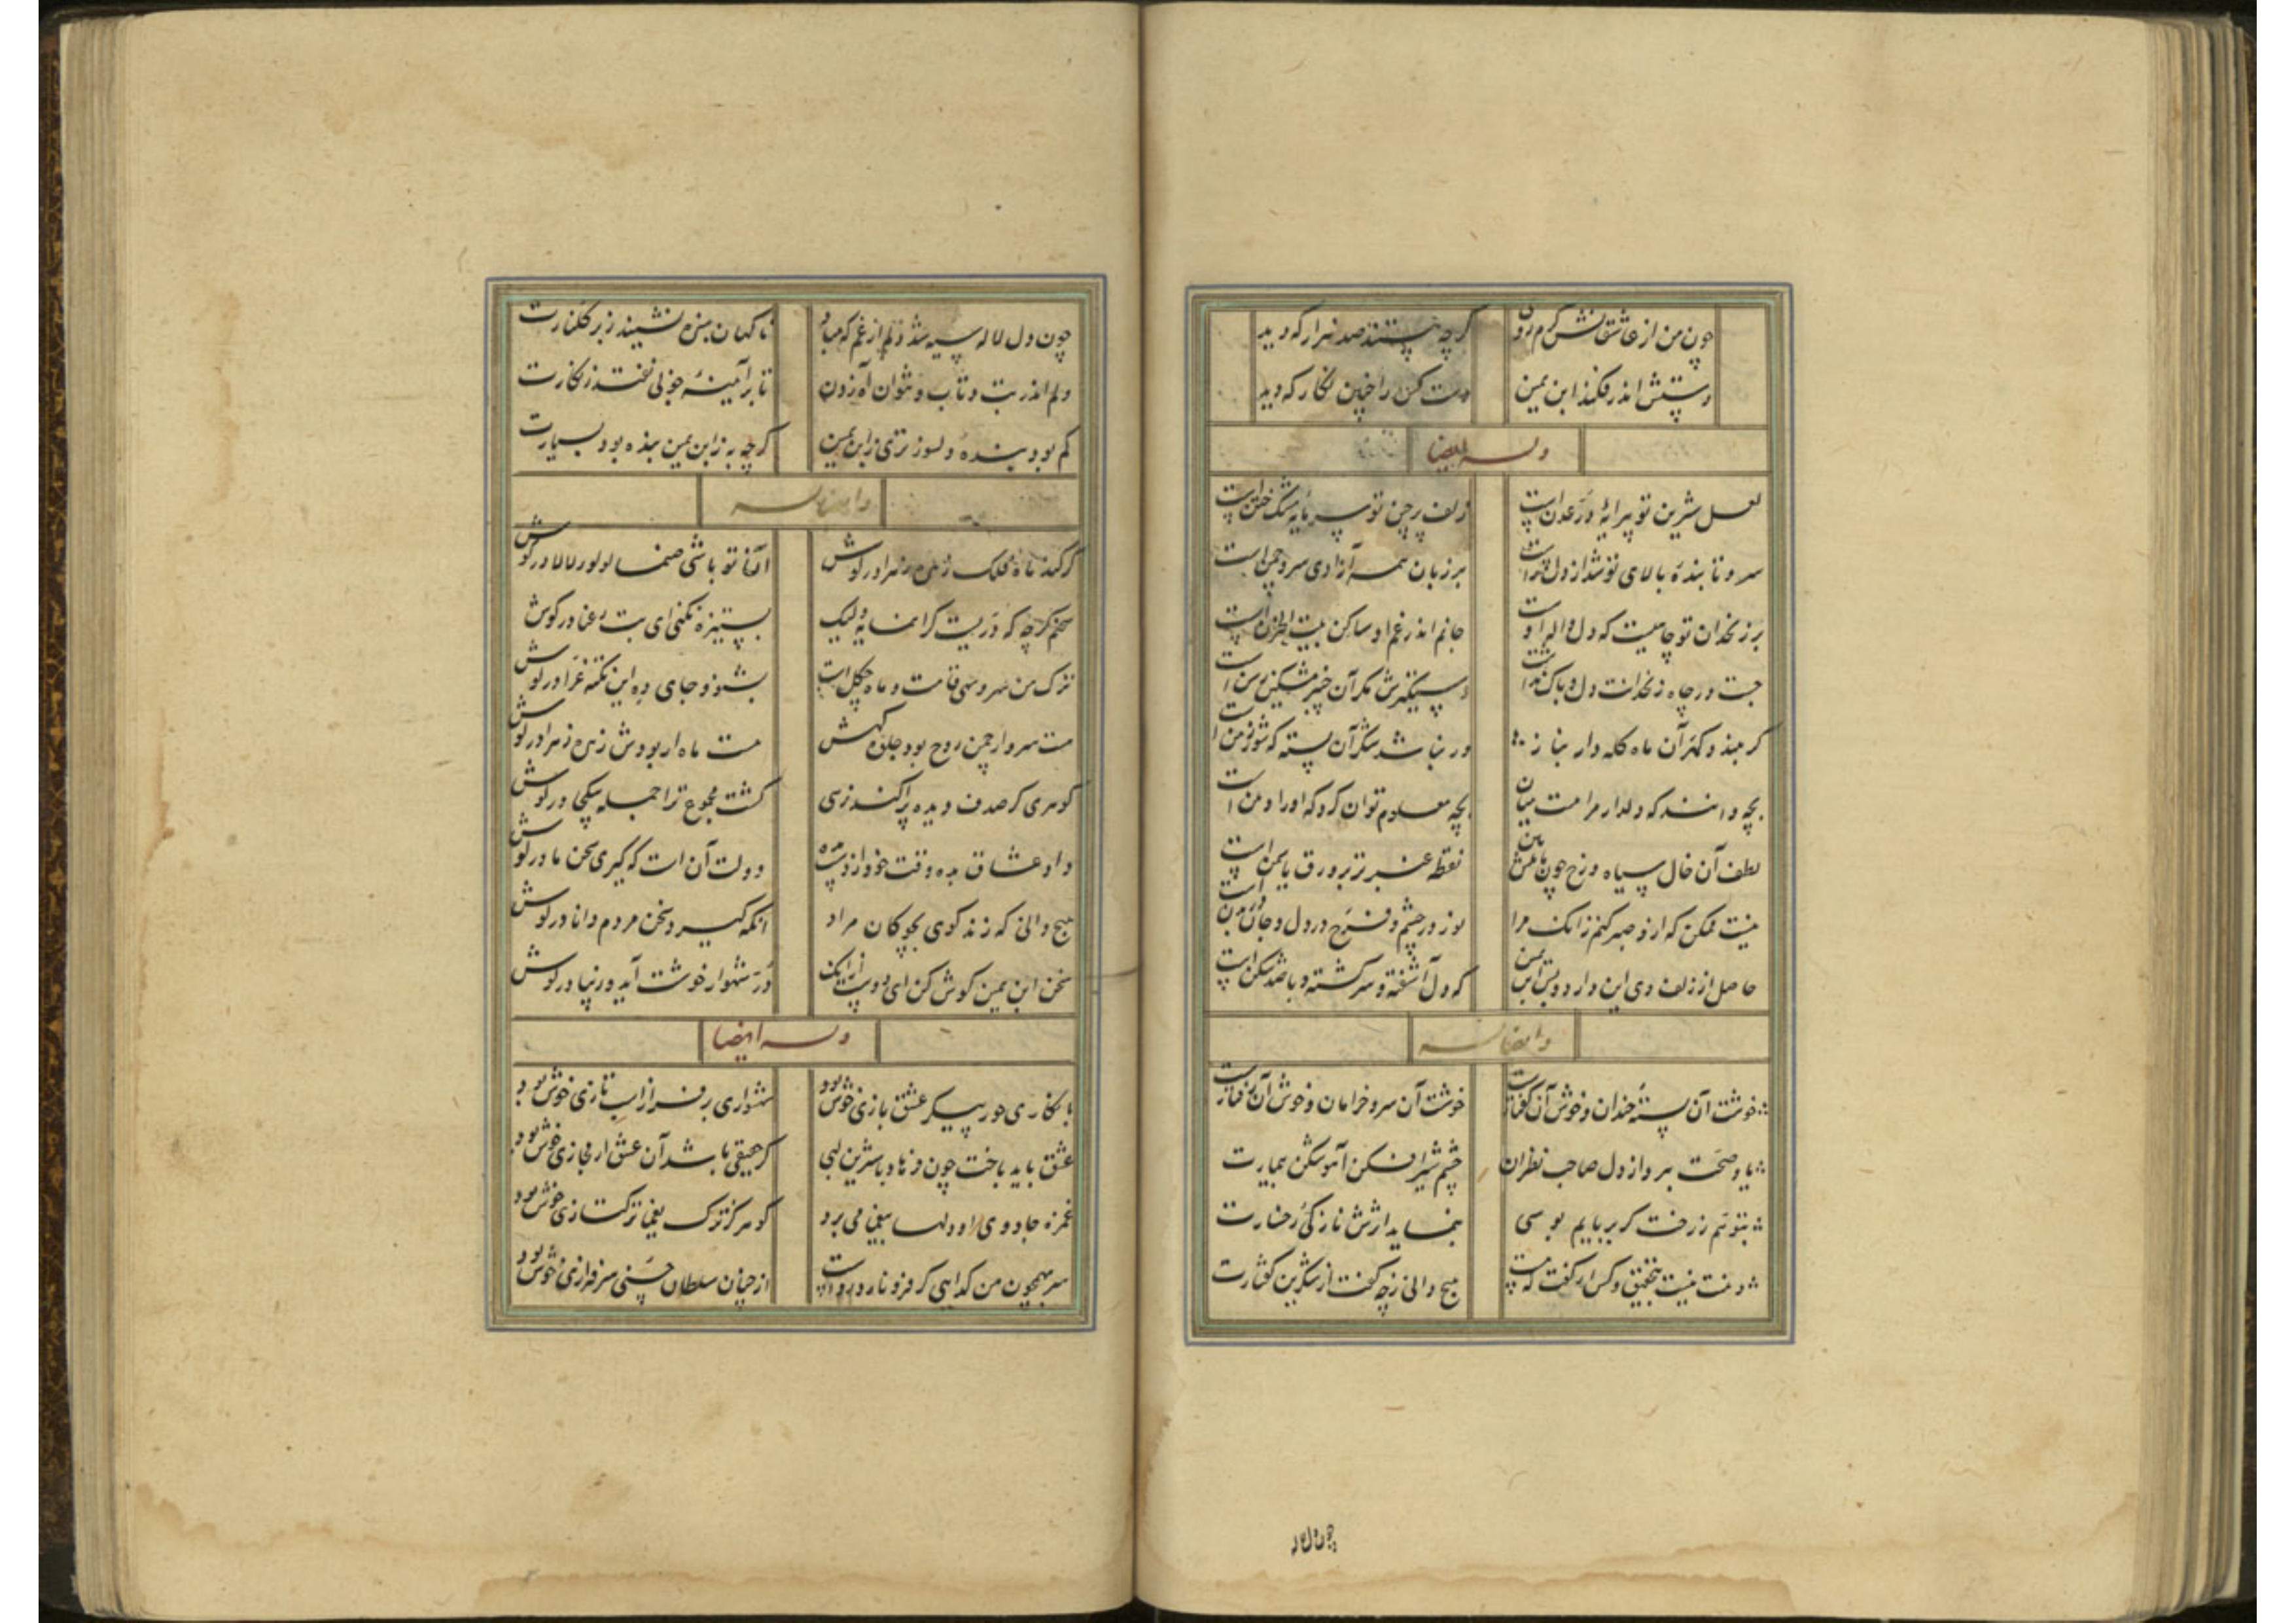 چون من از عاشقانش کم بودی گرچه هستند صد هزار که دید
دستش اندر فکند ابن یمین دست کن را چنین نگار که دید
وله ایضا
لعل شیرین تو پیرایهٔ درّ عدن است زلف پرچین تو سرمایه مشک ختن است
سرو تا بندهٔ بالای تو شد از دل راست بر زبان همه آزادی سرو چمن است
بر زنخدان تو چاهیست که دل واله اوست جانم اندر غم او ساکن بیت الحزن است
جست در چاه زنخدانت دل و باک نداشت دستگیرش مگر آن چنبر مشکین رسن است
گر ببندد کمر آن ماه کله دار بناز ور نباشد شکر آن پسته که شور زمن است
بچه دانند که دلدار مرا هست میان بچه معلوم توان کرد که او را دهن است
لطف آن خال سیاه و رخ چون یاسمنش نقطه عنبر تر بر ورق یاسمن است
نیست ممکن که ازو صبر کنم زانک مرا نور در چشم و فرح در دل و جان در بدن است
حاصل از زلف وی این دارد و بس ابن یمین که دل آشفته و سرگشته و با صد شکن است
وایضا له
خوشت آن پستهٔ خندان و خوش آن گفتارت خوشت آن سرو خرامان و خوش آن رفتارت
یاد صحت ببرد از دل صاحب نظران چشم شیر افکن آهو شکن بیمارت
نتوانم ز رخت گر بربایم بوسی بنماید اثرش نازکی رخسارت
دهنت نیست بتحقیق و کس ار گفت که هست هیچ دانی ز چه گفت از شکرین گفتارت
چون دل لاله
چون دل لاله سیه شد دلم از غم که مباد ناگهان سبزه نشیند ز بر گلنارت
دلم اندر تب و تاب و نتوان آه زدن تا بر آئینهٔ خوبی نفتد زنگارت
کم بود بندهٔ دلسوز تری ز ابن یمین گرچه به ز ابن یمین بنده بود بسیارت
وایضا له
گر کند ماه فلک زهره زهرا در گوش افکند تو باشی صنما لولو لالا در گوش
سخنم گرچه که درّیست گرانمایه ولیک بستیزه نکنی ای بت رعنا در گوش
ترک من سرو سهی قامت و ماه چگل است بشنو و جای ده این نکته غرّا در گوش
هست سرو ار چمن روح بود جلوه گهش هست ماه ار بودش زهره زهرا در گوش
گوهری کز صدف دیده پراکند ز سی گشت مجموع ترا جمله بیکجا در گوش
داد عشاق بده وقت خود از دست مده دولت آن است که گیری سخن ما در گوش
هیچ دانی که زند گوی بچوگان مراد آنکه گیرد سخن مردم دانا در گوش
سخن ابن یمین گوش کن ای دوست از آنک درّ شهوار خوشت آید و زیبا در گوش
وله ایضا
با نگاری حور پیکر عشق بازی خوش بود شهسواری بر فراز اسب تازی خوش بود
عشق باید باخت چون فرهاد با شیرین لبی گر حقیقی باشد آن عشق ار مجازی خوش بود
غمزه جادوی او دلها بیغما می برد گو مرکز ترک یغما ترکتازی خوش بود
سر همچون من گدایی گر فرو نارد رواست از چنان سلطان حسنی سرفرازی خوش بود